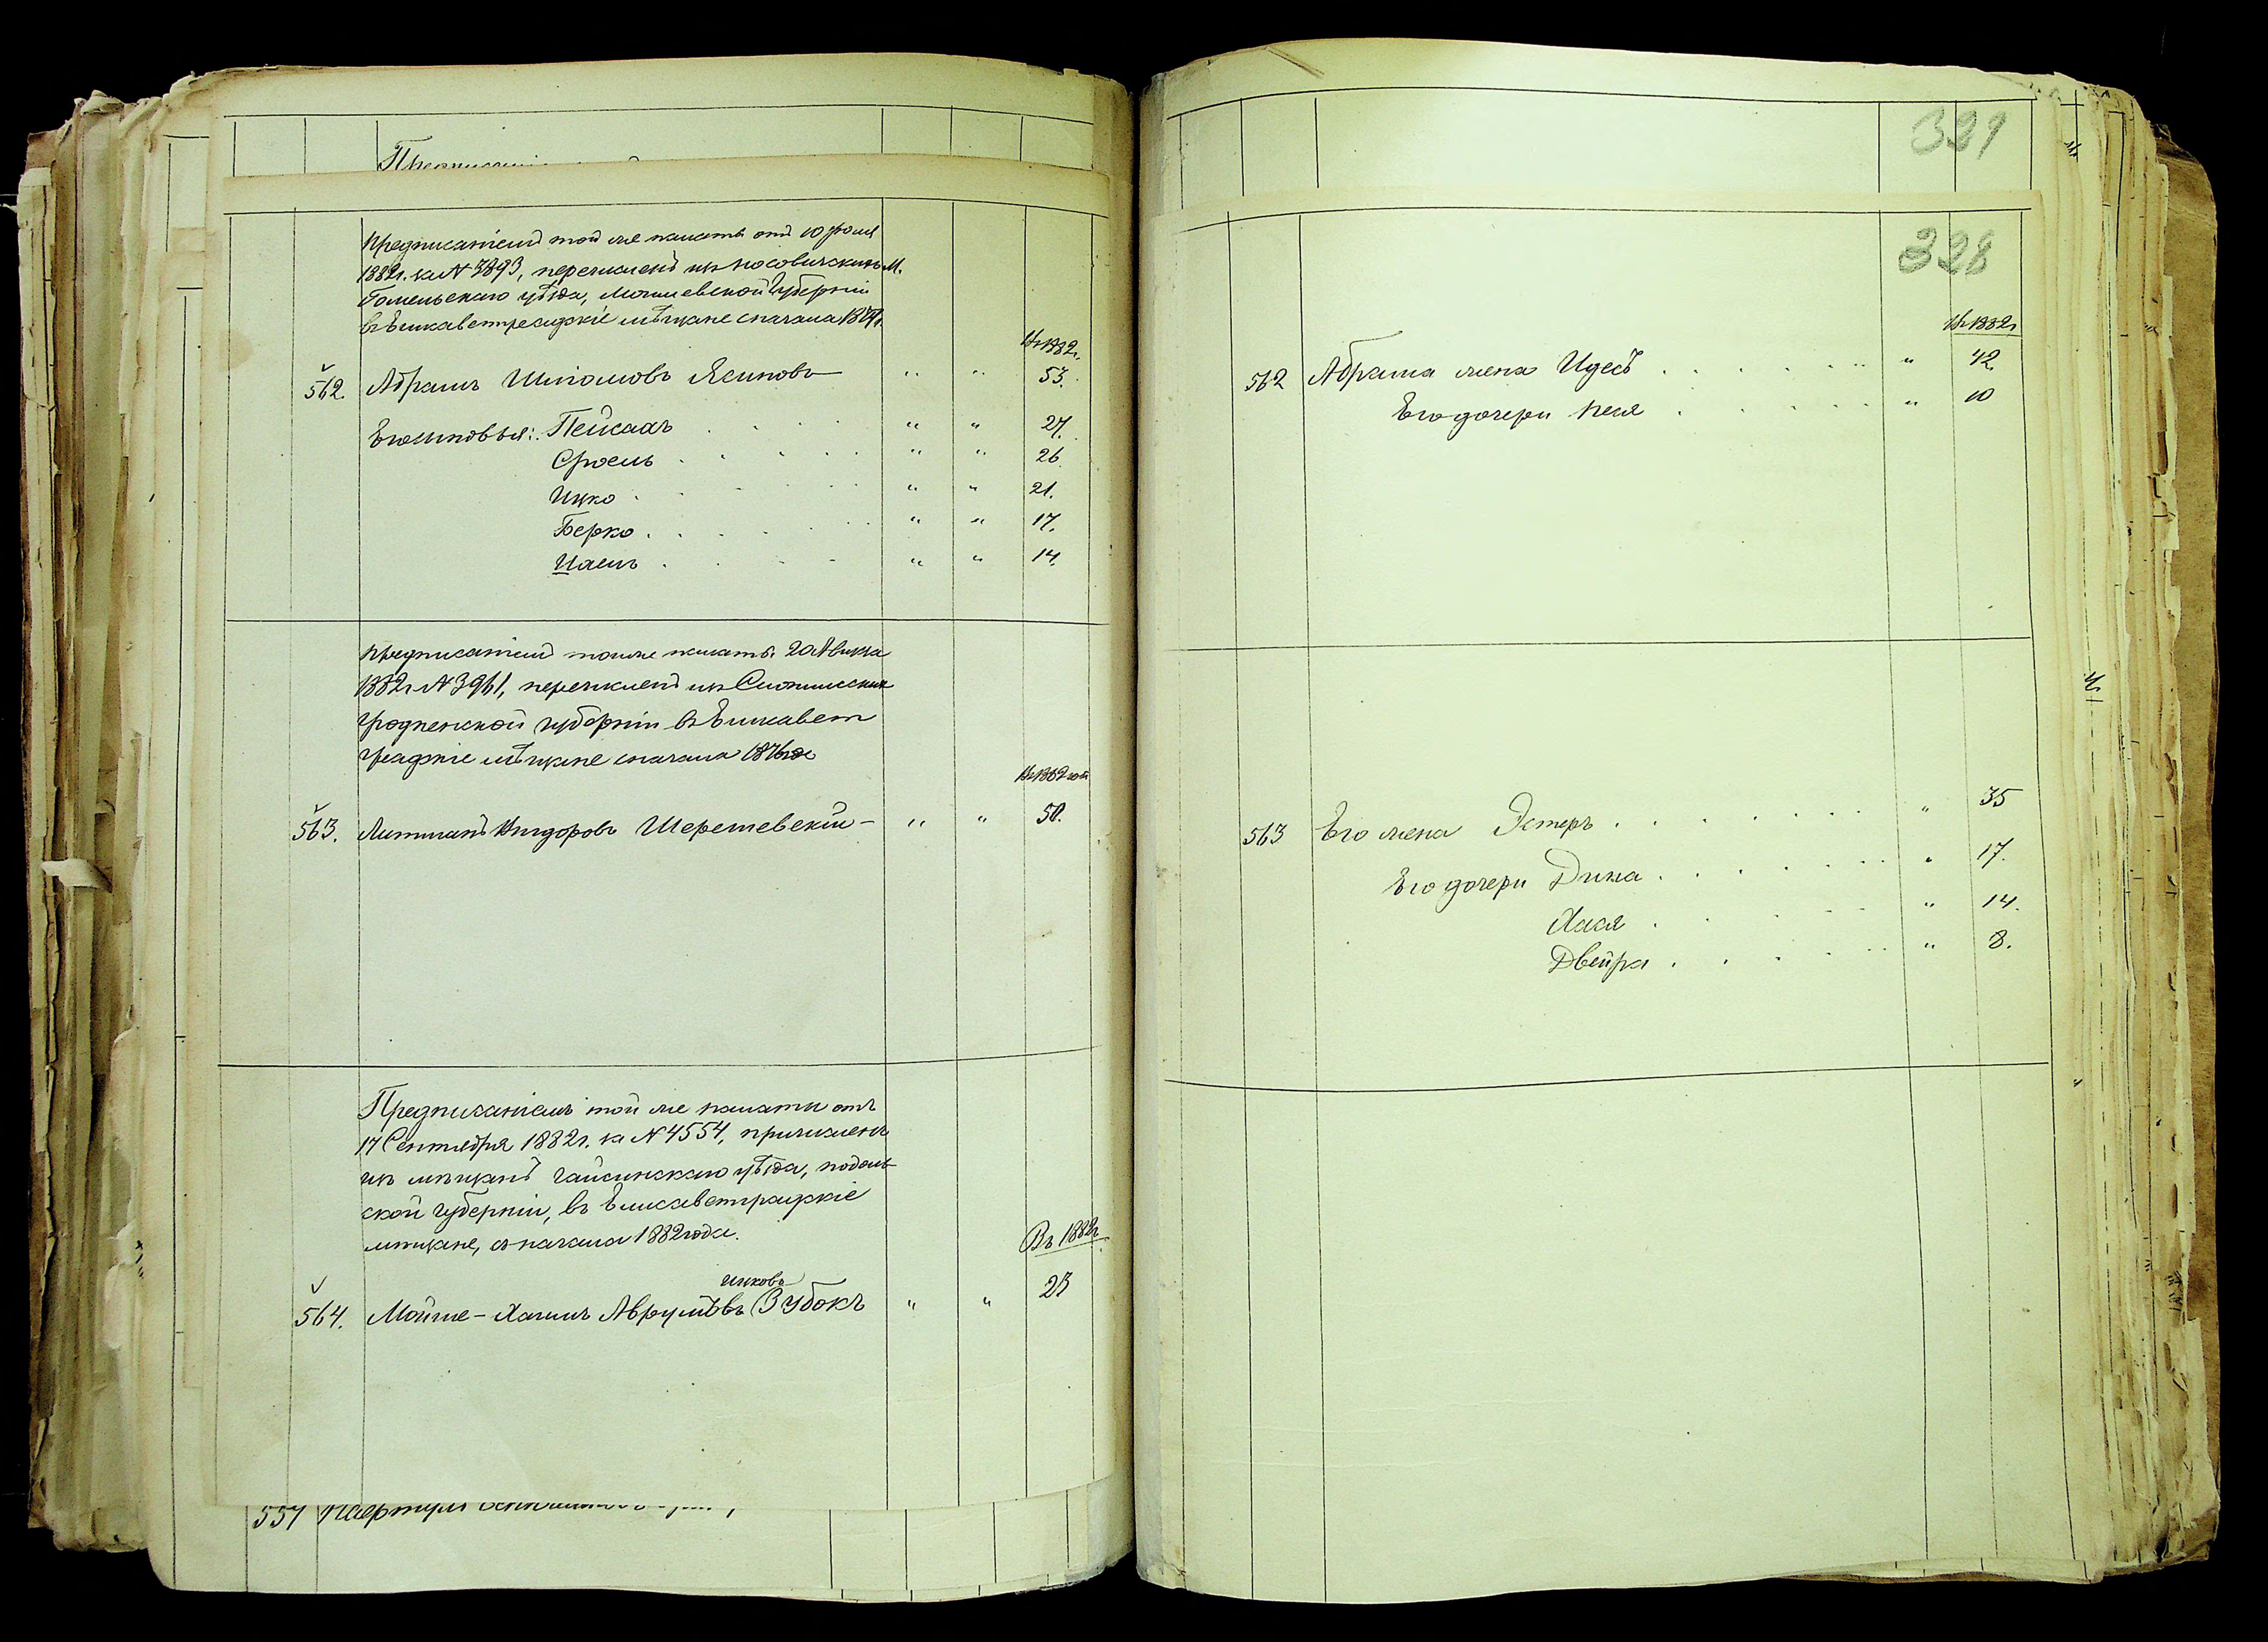 329
328
Предписаніемъ той же палаты отъ 10 Іюля
1882г. за № 3893, перечисленъ изъ Носовичскихъ М.
Гомельскаго уѣзда, Могилевской Губерніи
въ Елисаветградскіе мѣщане сначала
Въ 1882г.
562. Абрамъ Шліомовъ Ясиновъ " " 53.
Его сыновья: Пейсахъ . . . . " " 27.
Сроель . . . . . " " 26.
Ицко . . . . . " " 21.
Берко . . . . . " " 17.
" " 14.
Предписаніемъ тойже палаты
1882г № 3961, перечисленъ изъ
Гродненской губерніи въ Елисавет
градскіе мѣщане сначала
Въ 1882 год
563. Литманъ Шерешевскій - " " 50.
Предписаніемъ той же палаты отъ
17 Сентября 1882г. за № 4554, причисленъ
изъ мѣщанъ Гайсинскаго уѣзда, Подоль-
ской Губерніи, въ Елисаветградскіе
мѣщане, съ начала 1882 года.
Въ 1882г.
Ицковъ
564. Мойше-Хаимъ Аврумовъ Зубокъ " " 23
557
Въ 1882г
562 Абрама жена Идесъ . . . . . . " 42
Его дочери Песя . . . . . " 10
563 Его жена Эстеръ . . . . . . " 35
Его дочери Дина . . . . . . " 17.
Хася . . . . . " 14.
Двейра . . . . . " 8.